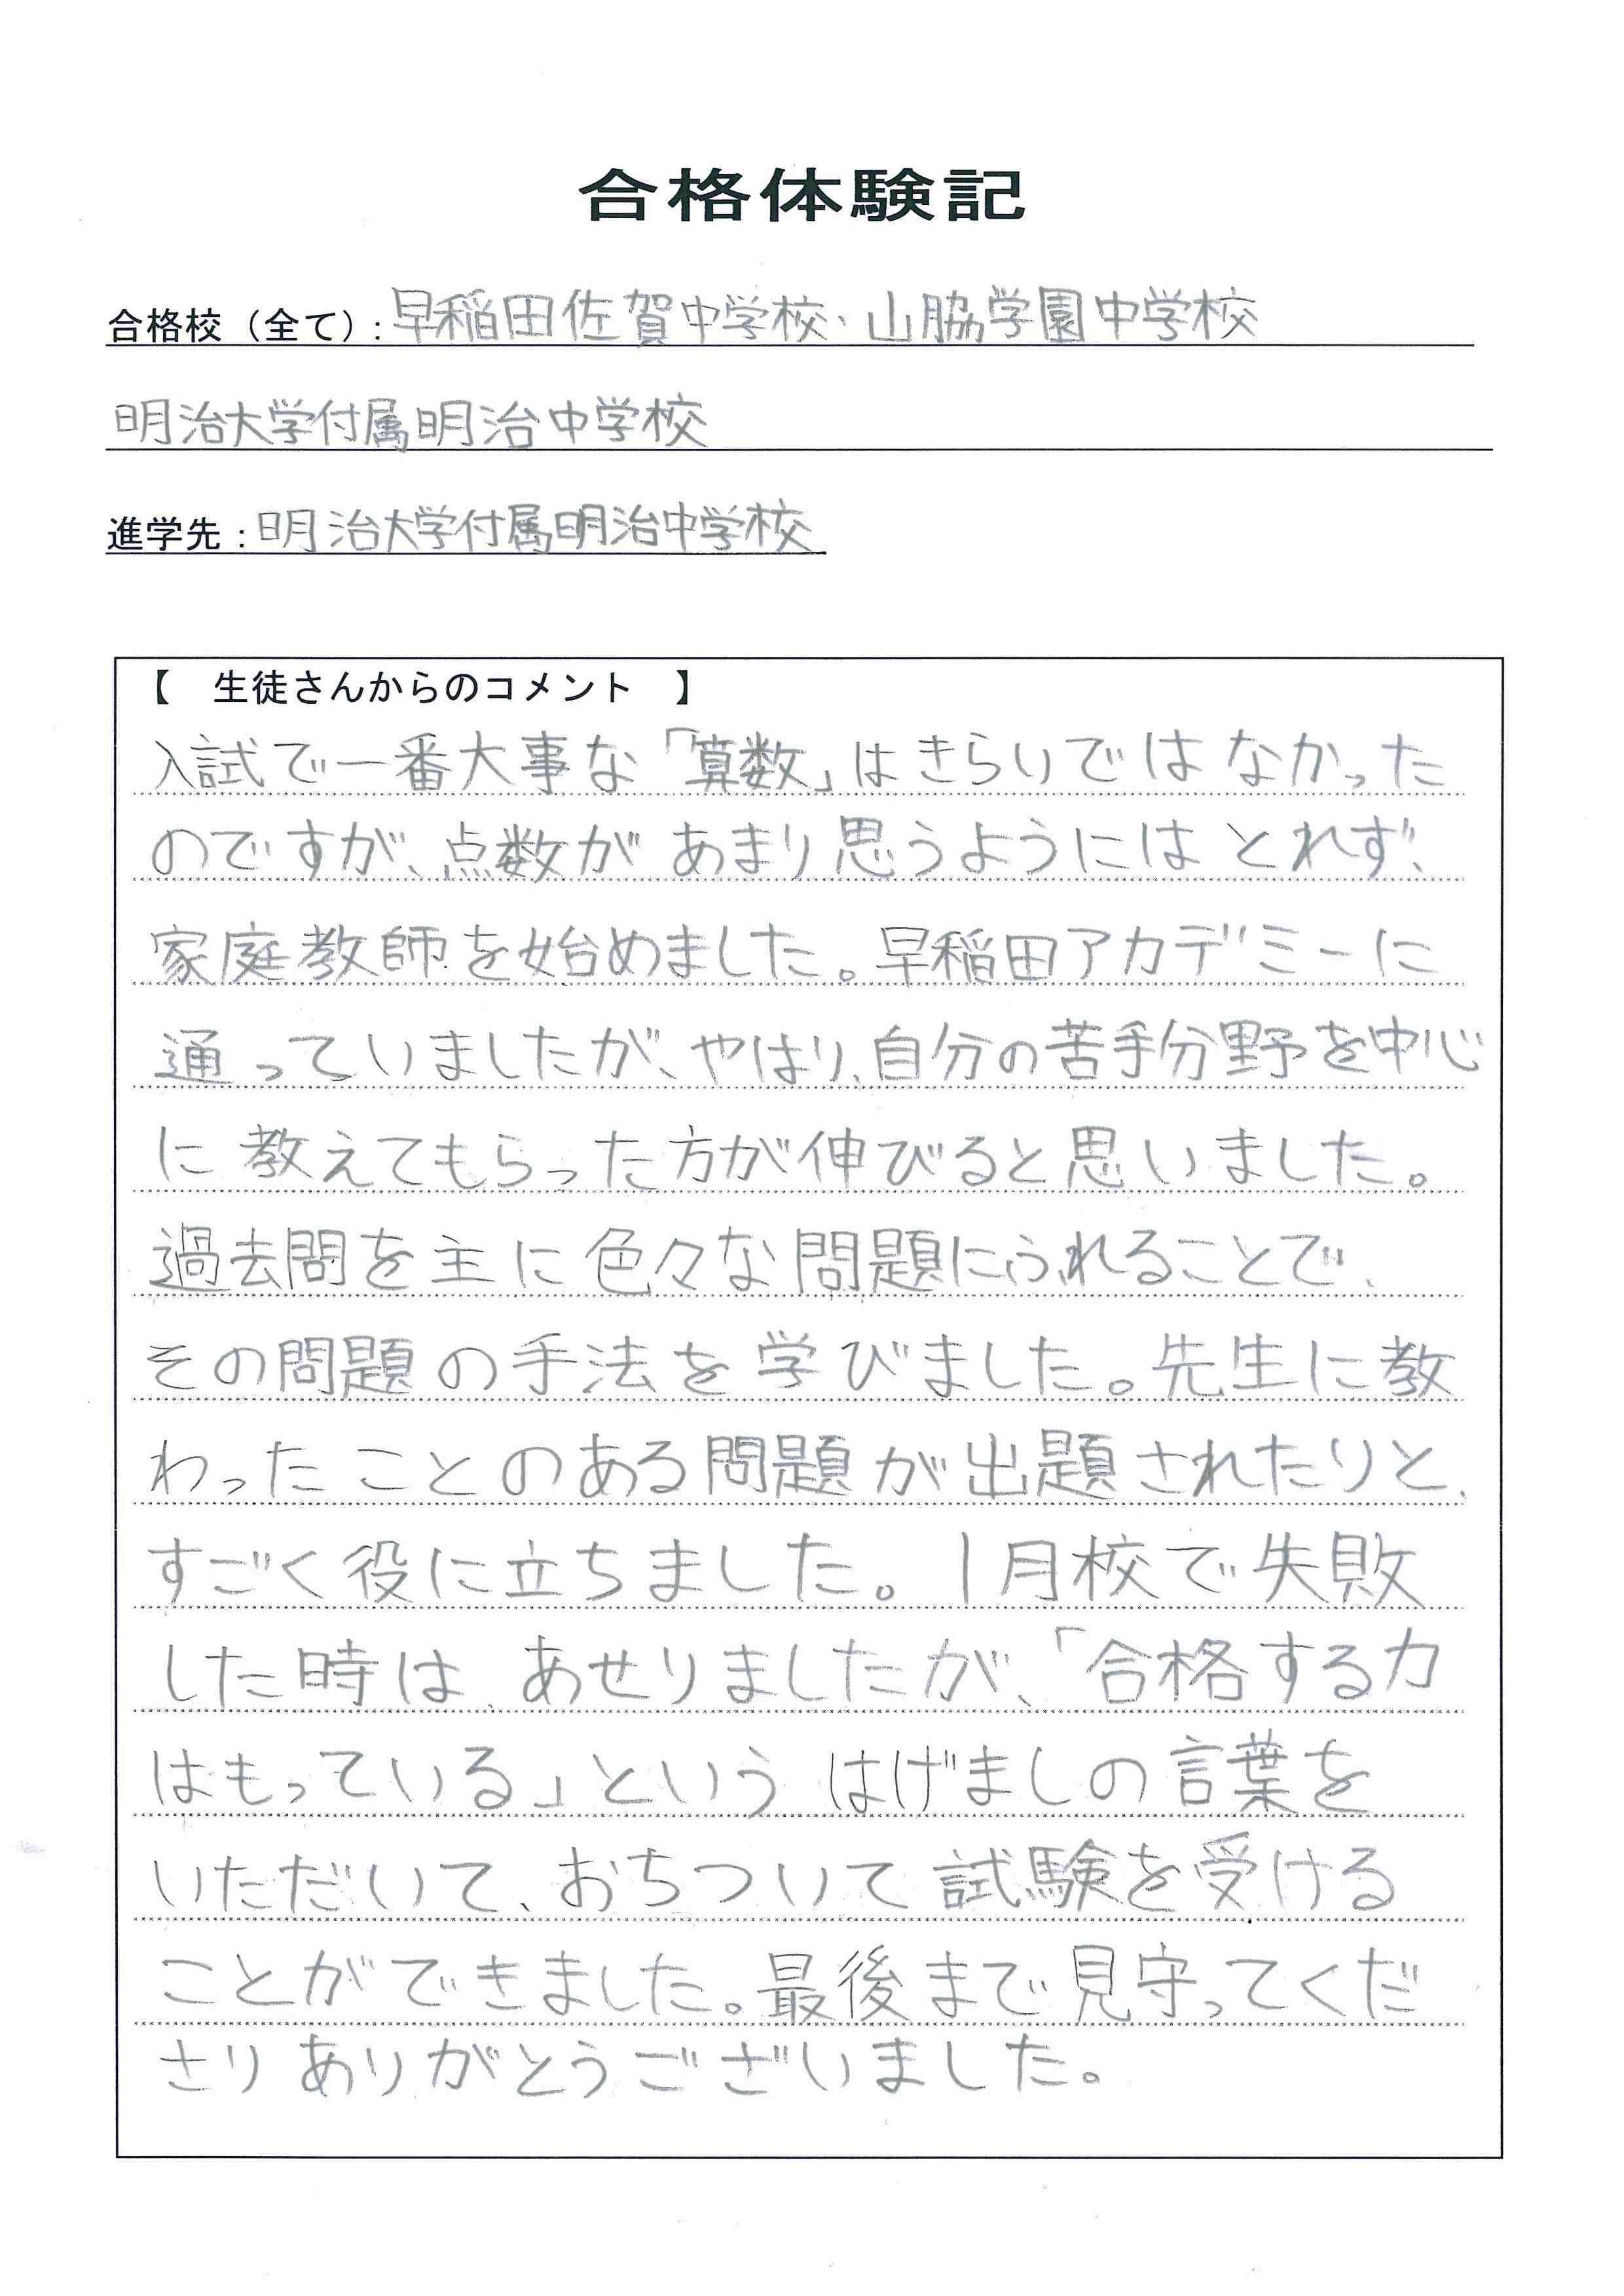 合格体験記
合格校（全て）: 早稲田佐賀中学校、山脇学園中学校
明治大学付属明治中学校
進学先：明治大学付属明治中学校
【　生徒さんからのコメント　】
入試で一番大事な「算数」はきらいではなかった
のですが、点数があまり思うようにはとれず、
家庭教師を始めました。早稲田アカデミーに
通っていましたが、やはり、自分の苦手分野を中心
に教えてもらった方が伸びると思いました。
過去問を主に色々な問題にふれることで、
その問題の手法を学びました。先生に教
わったことのある問題が出題されたりと、
すごく役に立ちました。1月校で失敗
した時は、あせりましたが、「合格する力
はもっている」というはげましの言葉を
いただいて、おちついて試験を受ける
ことができました。最後まで見守ってくだ
さりありがとうございました。